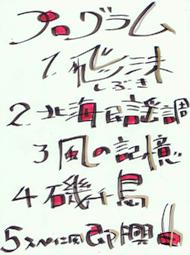 プログラム
1.飛沫
しぶき
2.北海民謡調
3風の記憶
4磯千鳥
5スペイン風即興